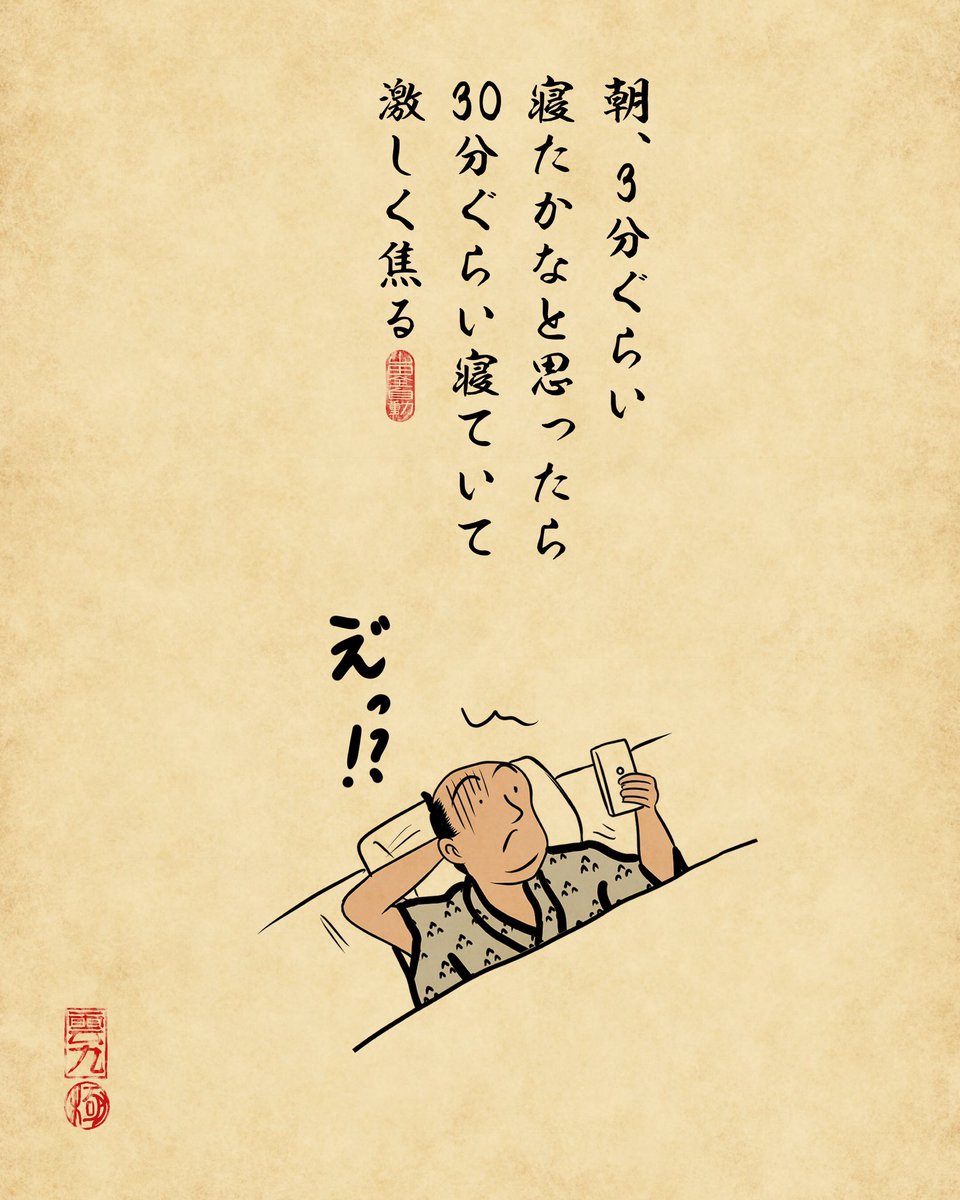 朝、3分ぐらい
寝たかなと思ったら
30分ぐらい寝ていて
激しく焦る
え゛っ!?